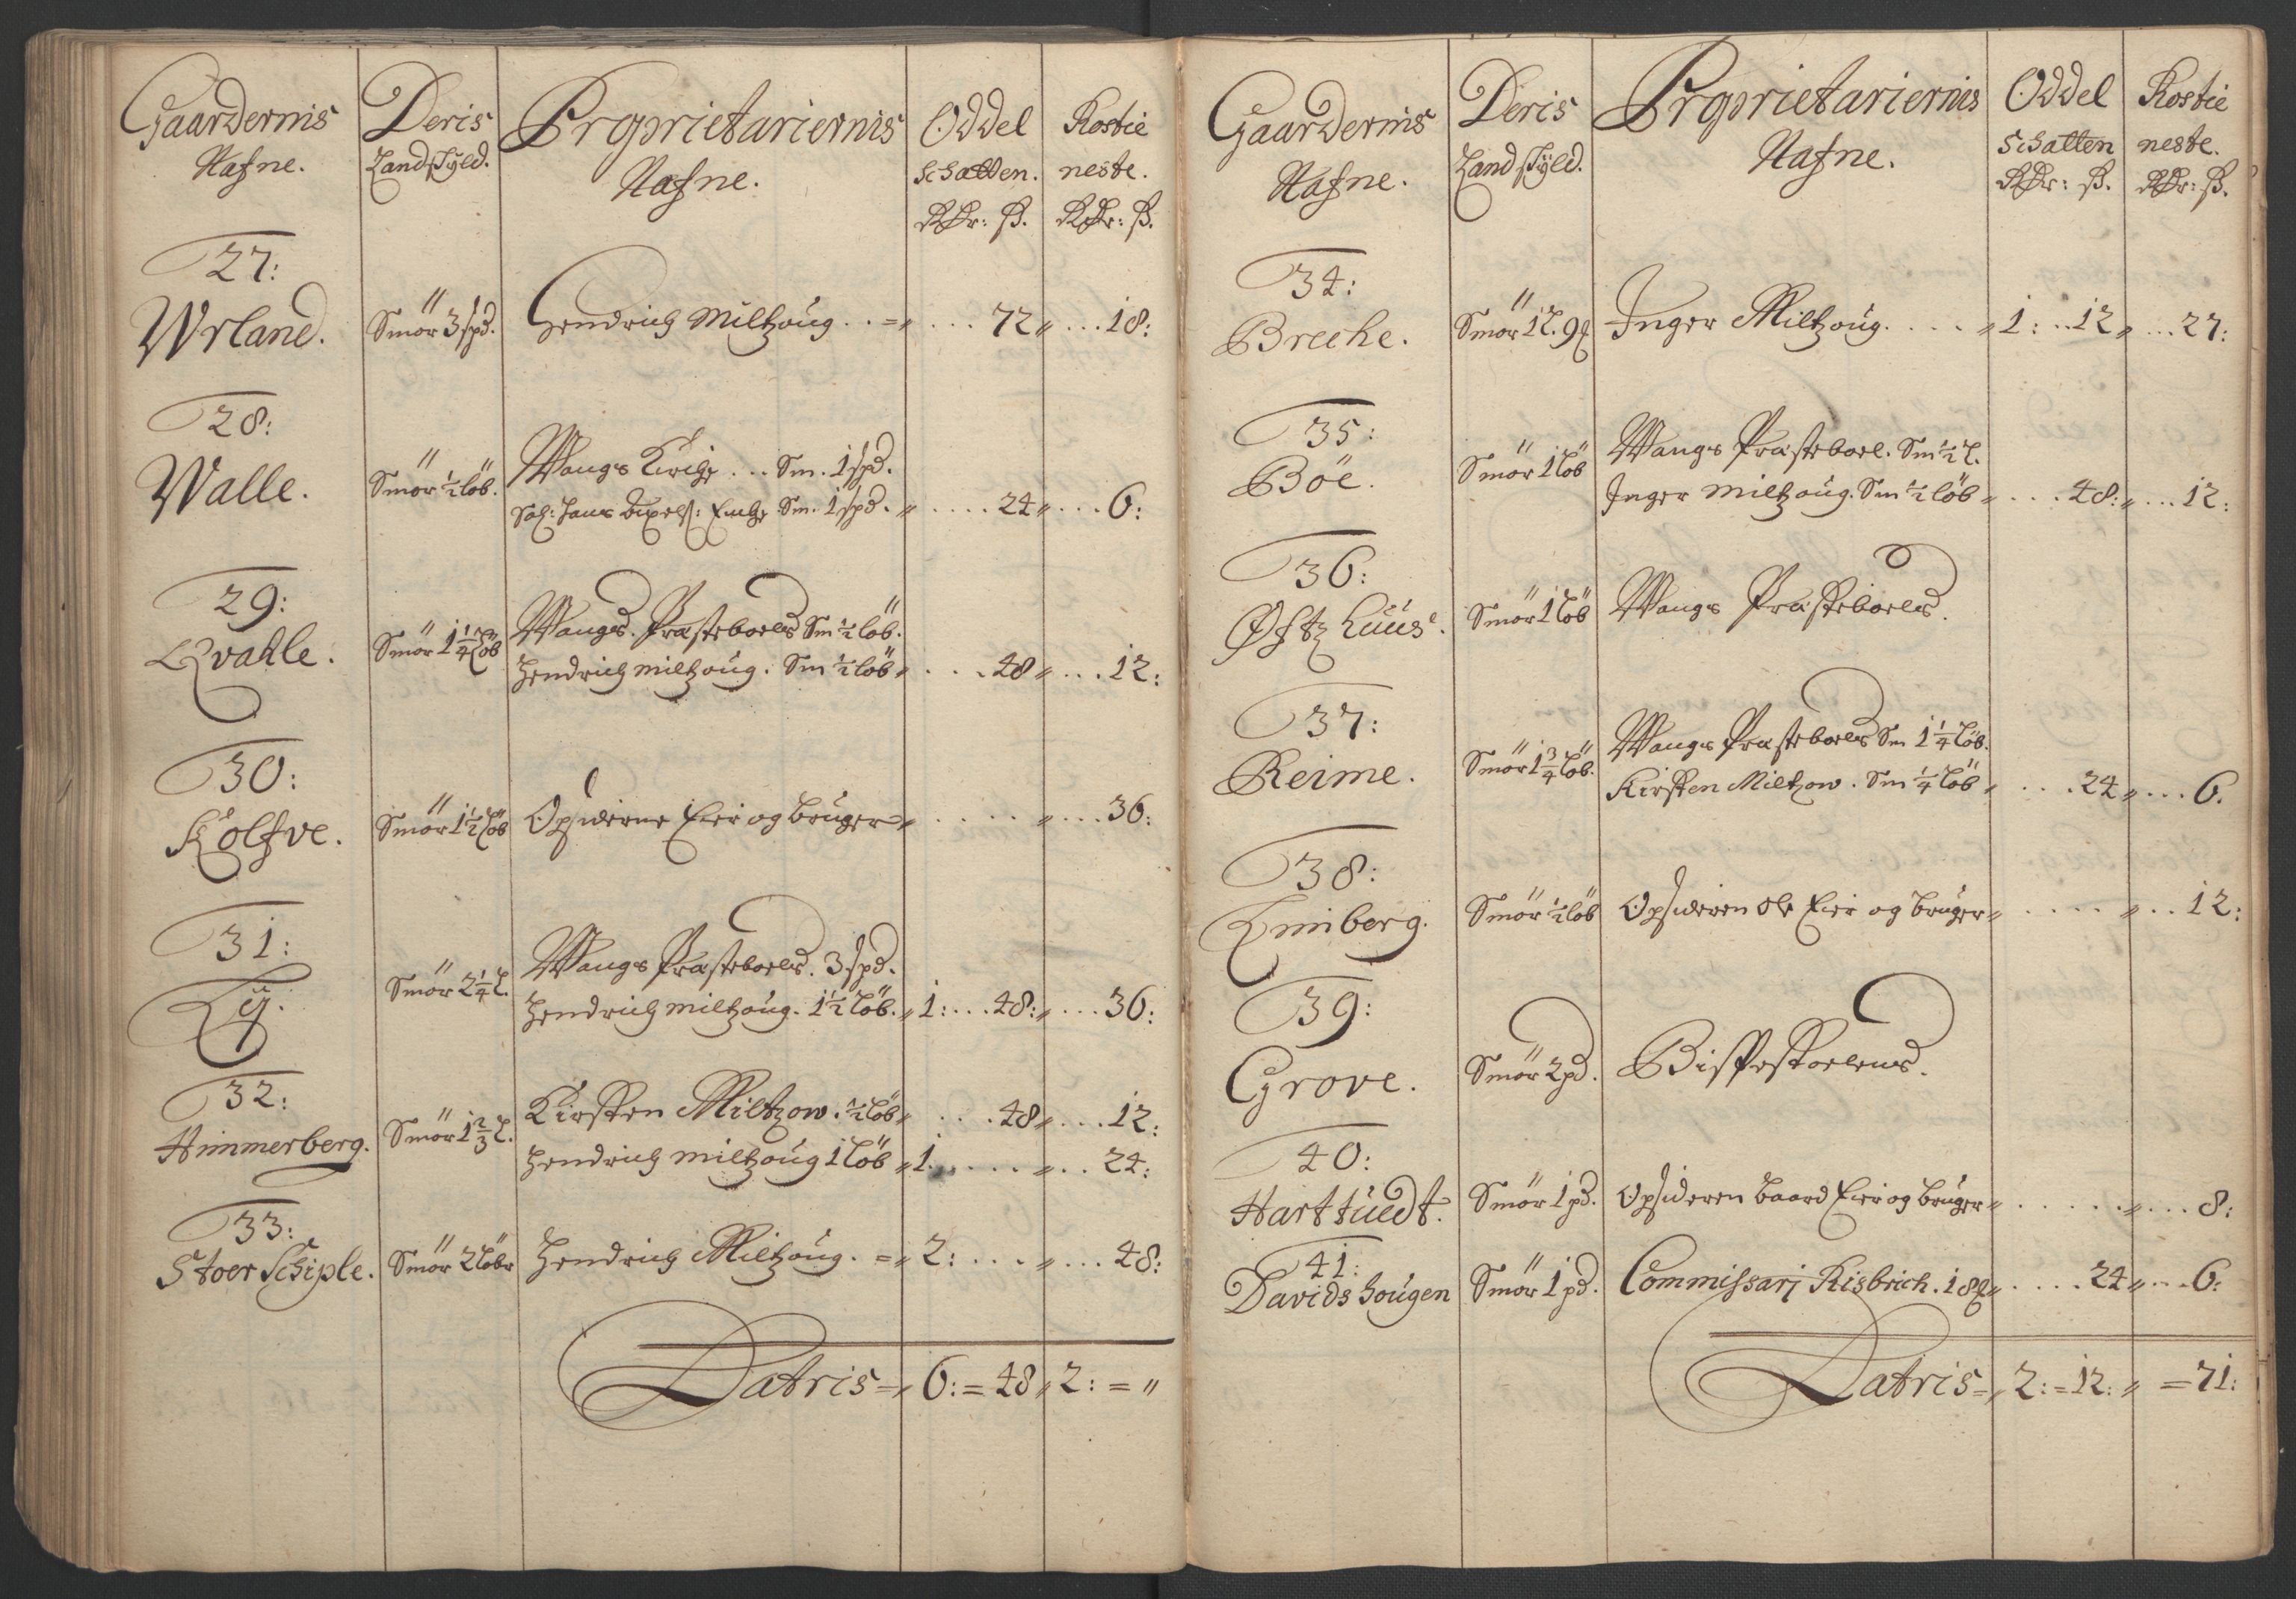 Gaardernis Nafne. Deris Landskyld. Proprietariernis Nafne. Oddel Schatten. Rdr: ß. Rostie neste. Rdr: ß.
27:
Wrland. Smör 3 spd. Hendrich Miltzoug . . =„ . . . 72 „ . . . 18:
28:
Walle. Smör ½ löb. Wangs Kirche . . . Sm. 1 spd.
Sal: Hans Enche Sm. 1 spd. „ . . . . 24 „ . . . 6:
29:
Qvahle. Smör 1¼ Löb Wangs. Præsteboels Sm ½ löb.
Hendrich Miltzoug. Sm ½ löb „ . . . 48 „ . . . 12:
30:
Kolfve. Smör 1½ Löb Opsiderne Eier og bruger „ . . . . „ . . . 36:
31:
Ly. Smör 2¼ L. Wangs Præsteboels. 3 spd.
Hendrich Miltzoug. 1½ Löb. „ 1: . . . 48: „ . . . 36:
32:
Himmerberg. Smör 1⅔ L. Kirsten Miltzow. ½ löb „ . . . 48 „ . . . 12:
Hendrich Miltzoug 1 Löb „ 1. . . . . „ . . 24:
33:
Stoer Schiple. Smör 2 Löbr Hendrich Miltzoug. =„ 2: . . . . „ . . . 48:
Latris =„ 6: = 48 „ 2: = „
Gaardernis Nafne. Deris Landskyld. Proprietariernis Nafne. Oddel Schatten Rdr: ß. Rostie neste. Rdr: ß.
34:
Breche. Smör 1 L. 9 Inger Miltzoug. . . . . „ 1: . . 12 „ . . . 27:
35:
Böe. Smör 1 Löb Wangs Præsteboel. Sm ½ L.
Inger Miltzoug. Sm ½ löb „ . . . 48: „ . . . 12:
36:
Øftzhuus. Smör 1 Löb Wangs Præsteboels.
37:
Reime. Smör 1¾ Löb. Wangs Præsteboels Sm 1¼ Löb.
Kirsten Miltzow. Sm ¼ Löb „ . . . 24 „ . . . 6.
38:
Emiberg. Smör ½ löb Opsideren Ole Eier og bruger „ . . . . „ . . 12:
39:
Grove. Smör 2 pd. Bispestoelens.
40:
Harttuedt. Smör 1 pd. Opsideren Baard Eier og bruger „ . . . . . „ . . . 8:
41:
Davidshougen Smör 1 pd. Commissarj Risbrich. 18 „ . . . . 24 „ . . . 6:
Latris =„ 2: = 12: „ = 71: